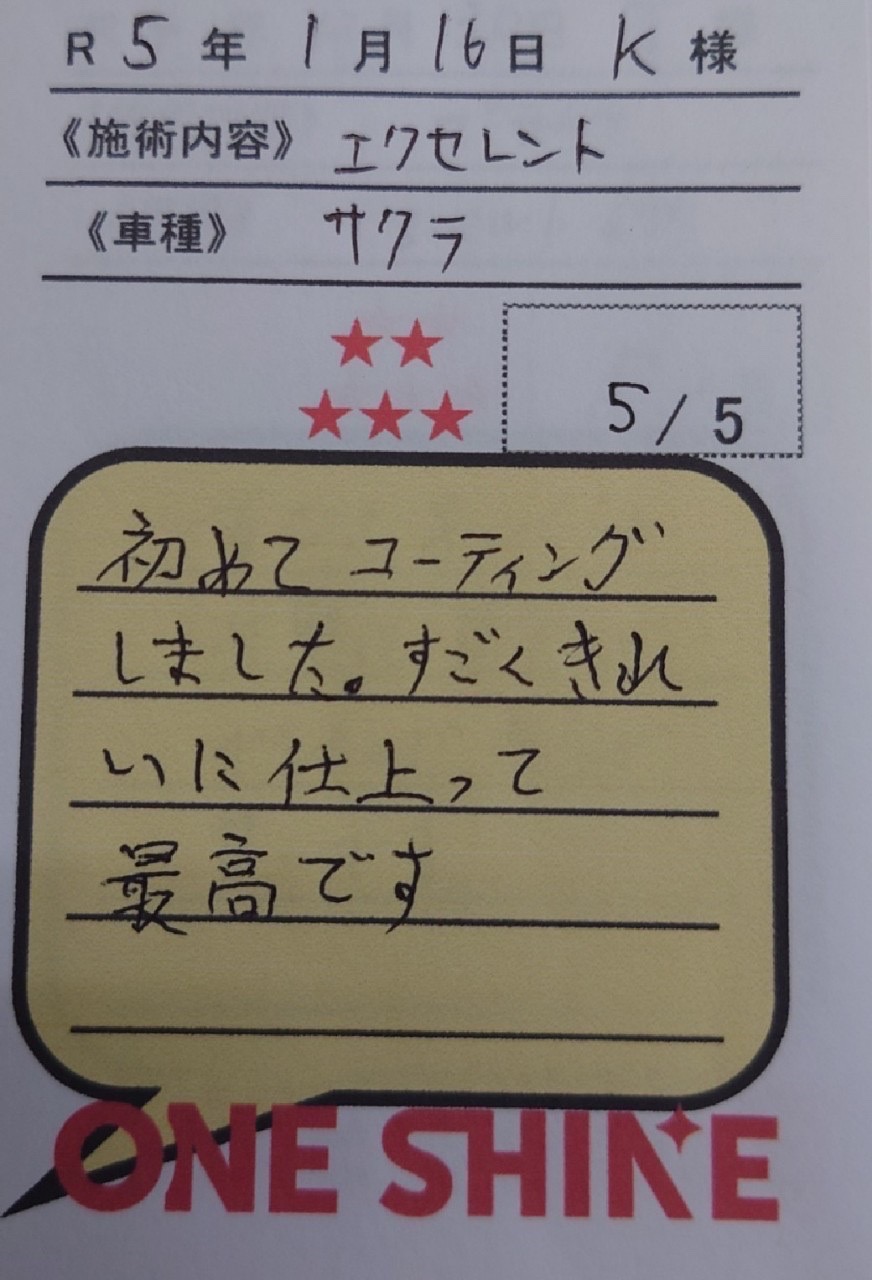 R 5 年 1 月 16 日 K 様
《施術内容》 エクセレント
《車種》 サクラ
★★
★★★ 5/5
初めてコーティング
しました。すごくきれ
いに仕上って
最高です
ONE SHINE